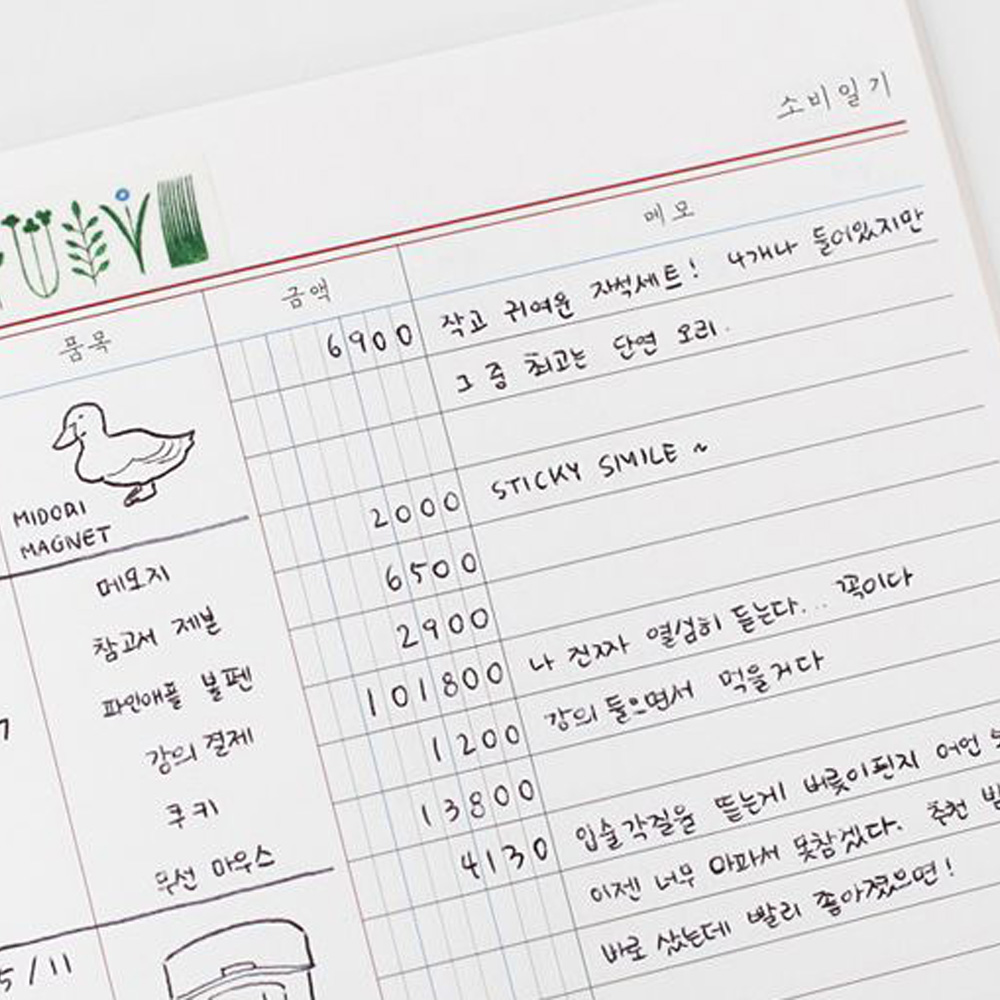 소비일기
품목 금액 메모
6900 작고 귀여운 자석세트! 4개나 들어있지만
그 중 최고는 단연 오리.
MIDORI
MAGNET
메모지 2000 STICKY SIMILE ~
참고서 제본 6500
파인애플 볼펜 2900
강의 결제 101800 나 진짜 열심히 듣는다... 꼭이다
쿠키 1200 강의 들으면서 먹을거다
무선 마우스 13800
5/11 4130 입술각질을 뜯는게 버릇이된지 어언
이젠 너무 아파서 못참겠다. 추천
바로 샀는데 빨리 좋아졌으면!